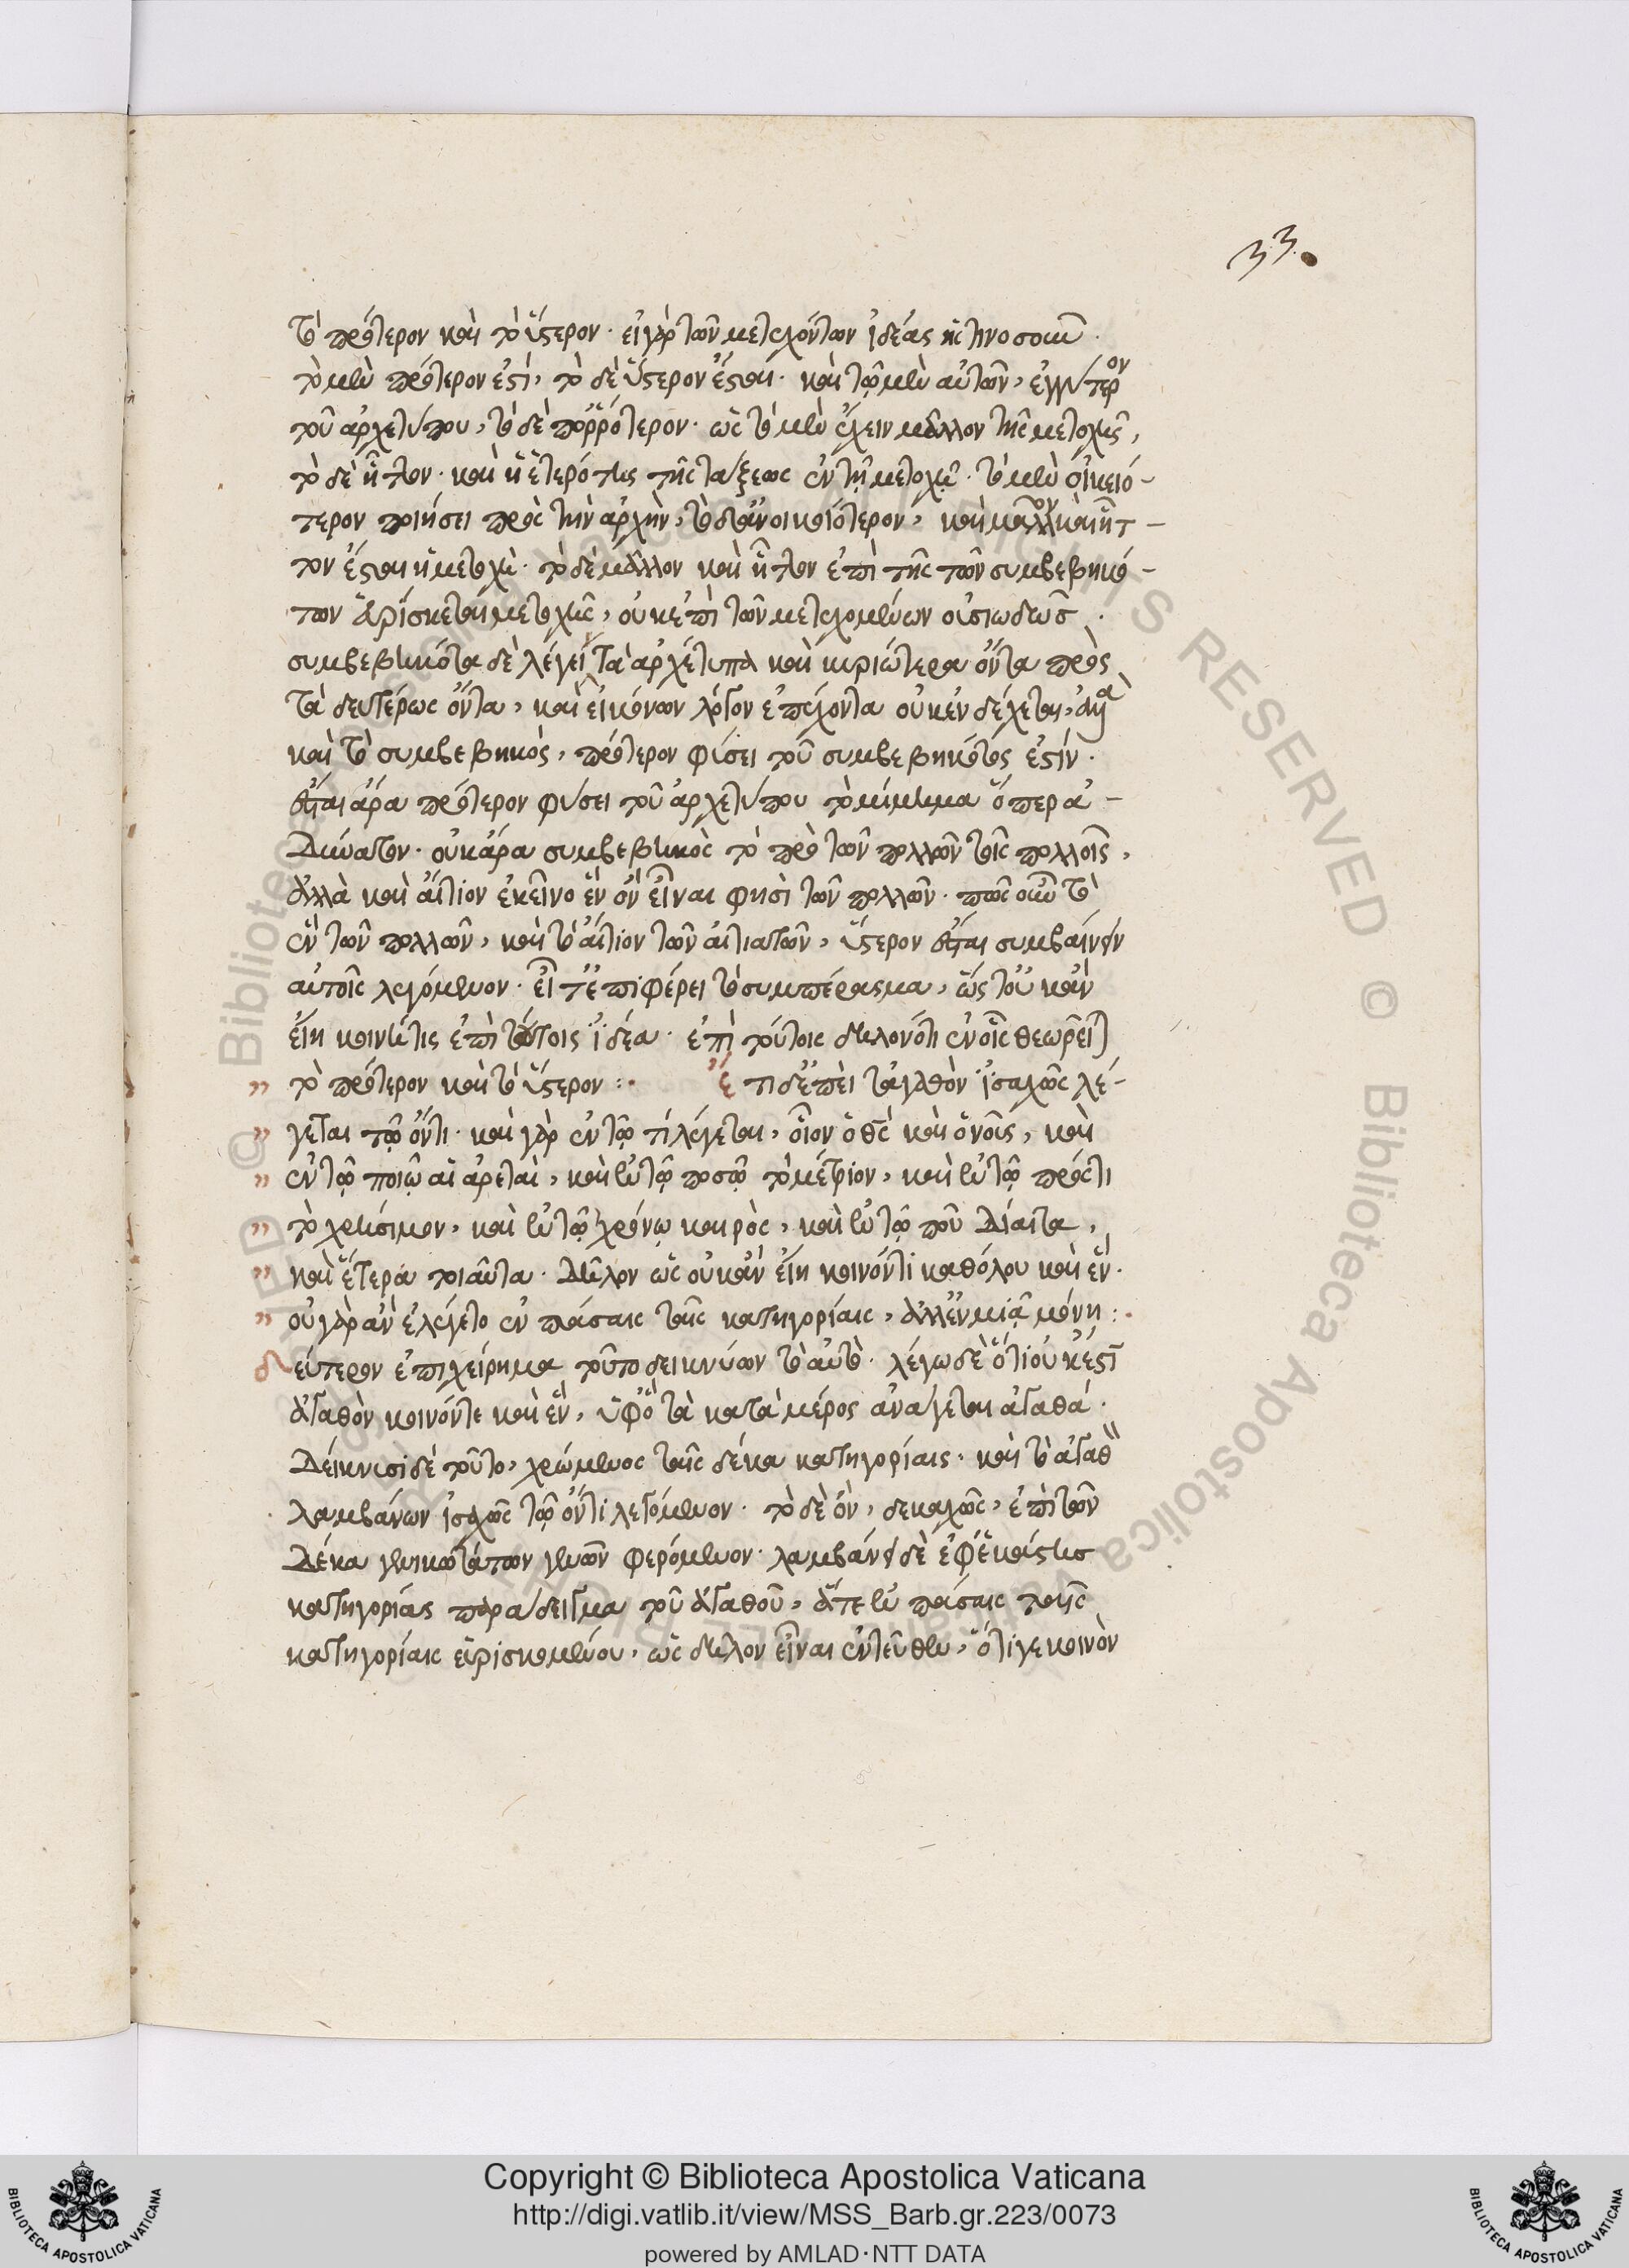 33.
τὸ πρότερον καὶ τὸ ὕστερον· εἰ γὰρ τῶν μετεχόντων ἰδέας
τὸ μὲν πρότερον ἐστὶ, τὸ δὲ ὕστερον ἔσται· καὶ τῶ μὲν αὐτῶν, ἐγγύτερον
τοῦ ἀρχετύπου, τὸ δὲ πορρότερον· ὡς τὸ μὲν ἔχειν μᾶλλον τῆς μετοχῆς,
τὸ δὲ ἧττον· καὶ ἡ ἑτερότης τῆς τάξεως ἐν τῇ μετοχῇ· τὸ μὲν οἰκειό-
τερον ποιήσει πρὸς τὴν ἀρχὴν, τὸ δ' ἀνοικειότερον, καὶ μᾶλλον καὶ ἧτ-
τον ἔσται ἡ μετοχὴ· τὸ δὲ μᾶλλον καὶ ἧττον ἐπὶ τῆς τῶν συμβεβηκό-
των εὑρίσκεται μετοχῆς, οὐκ ἐπὶ τῶν μετεχομένων οὐσιωδῶς·
συμβεβηκότα δὲ λέγει τὰ ἀρχέτυπα καὶ κυριώτερα ὄντα πρὸς
τὰ δευτέρως ὄντα, καὶ εἰκόνων λόγον ἐπέχοντα οὐκ ἐνδέχεται,
καὶ τὸ συμβεβηκὸς, πρότερον φύσει τοῦ συμβεβηκότος ἐστίν·
ἔσται ἄρα πρότερον φύσει τοῦ ἀρχετύπου τὸ μίμημα ὅπερ ἀ-
δύνατον· οὐκ ἄρα συμβεβηκὸς τὸ πρὸ τῶν πολλῶν τοῖς πολλοῖς,
ἀλλὰ καὶ αἴτιον ἐκεῖνο ἓν ὂν εἶναι φησὶ τῶν πολλῶν· πῶς οὖν τὸ
ἓν τῶν πολλῶν, καὶ τὸ αἴτιον τῶν αἰτιατῶν, ὕστερον ἔσται συμβαίνειν
αὐτοῖς λεγόμενον· εἶτ' ἐπιφέρει τὸ συμπέρασμα, ὥστ' οὐκ ἂν
εἴη κοινή τις ἐπὶ τούτοις ἰδέα· ἐπὶ τούτοις δηλονότι ἐν οἷς θεωρεῖται
τὸ πρότερον καὶ τὸ ὕστερον:· ἔτι δ' ἐπεὶ τἀγαθὸν ἰσαχῶς λέ-
γεται τῶ ὄντι· καὶ γὰρ ἐν τῶ τὶ λέγεται, οἷον ὁ θς καὶ ὁ νοῦς, καὶ
ἐν τῶ ποιῶ αἱ ἀρεταὶ, καὶ ἐν τῶ ποσῶ τὸ μέτριον, καὶ ἐν τῶ πρός τι
τὸ χρήσιμον, καὶ ἐν τῶ χρόνω καιρὸς, καὶ ἐν τῶ ποῦ δίαιτα,
καὶ ἕτερα τοιαῦτα· δῆλον ὡς οὐκ ἂν εἴη κοινόν τι καθόλου καὶ ἕν·
οὐ γὰρ ἂν ἐλέγετο ἐν πάσαις ταῖς κατηγορίαις, ἀλλ' ἐν μιᾶ μόνη:·
δεύτερον ἐπιχείρημα τοῦτο δεικνύων τὸ αὐτὸ· λέγω δὲ ὅτι οὐκ ἔστι
ἀγαθὸν κοινόν τε καὶ ἓν, ὑφ' ὃ τὰ κατὰ μέρος ἀνάγεται ἀγαθά·
δείκνυσι δὲ τοῦτο, χρώμενος ταῖς δέκα κατηγορίαις· καὶ τὸ ἀγαθὸν
λαμβάνων ἰσαχῶς τῶ ὄντι λεγόμενον· τὸ δὲ ὂν, δεκαχῶς, ἐπὶ τῶν
δέκα γενικωτάτων γενῶν φερόμενον· λαμβάνει δὲ ἐφ' ἑκάστης
κατηγορίας παράδειγμα τοῦ ἀγαθοῦ, ἅτε ἐν πάσαις ταῖς
κατηγορίαις εὑρισκομένου, ὡς δῆλον εἶναι ἐντεῦθεν, ὅτι γε κοινὸν
Copyright © Biblioteca Apostolica Vaticana
http://digi.vatlib.it/view/MSS_Barb.gr.223/0073
powered by AMLAD·NTT DATA